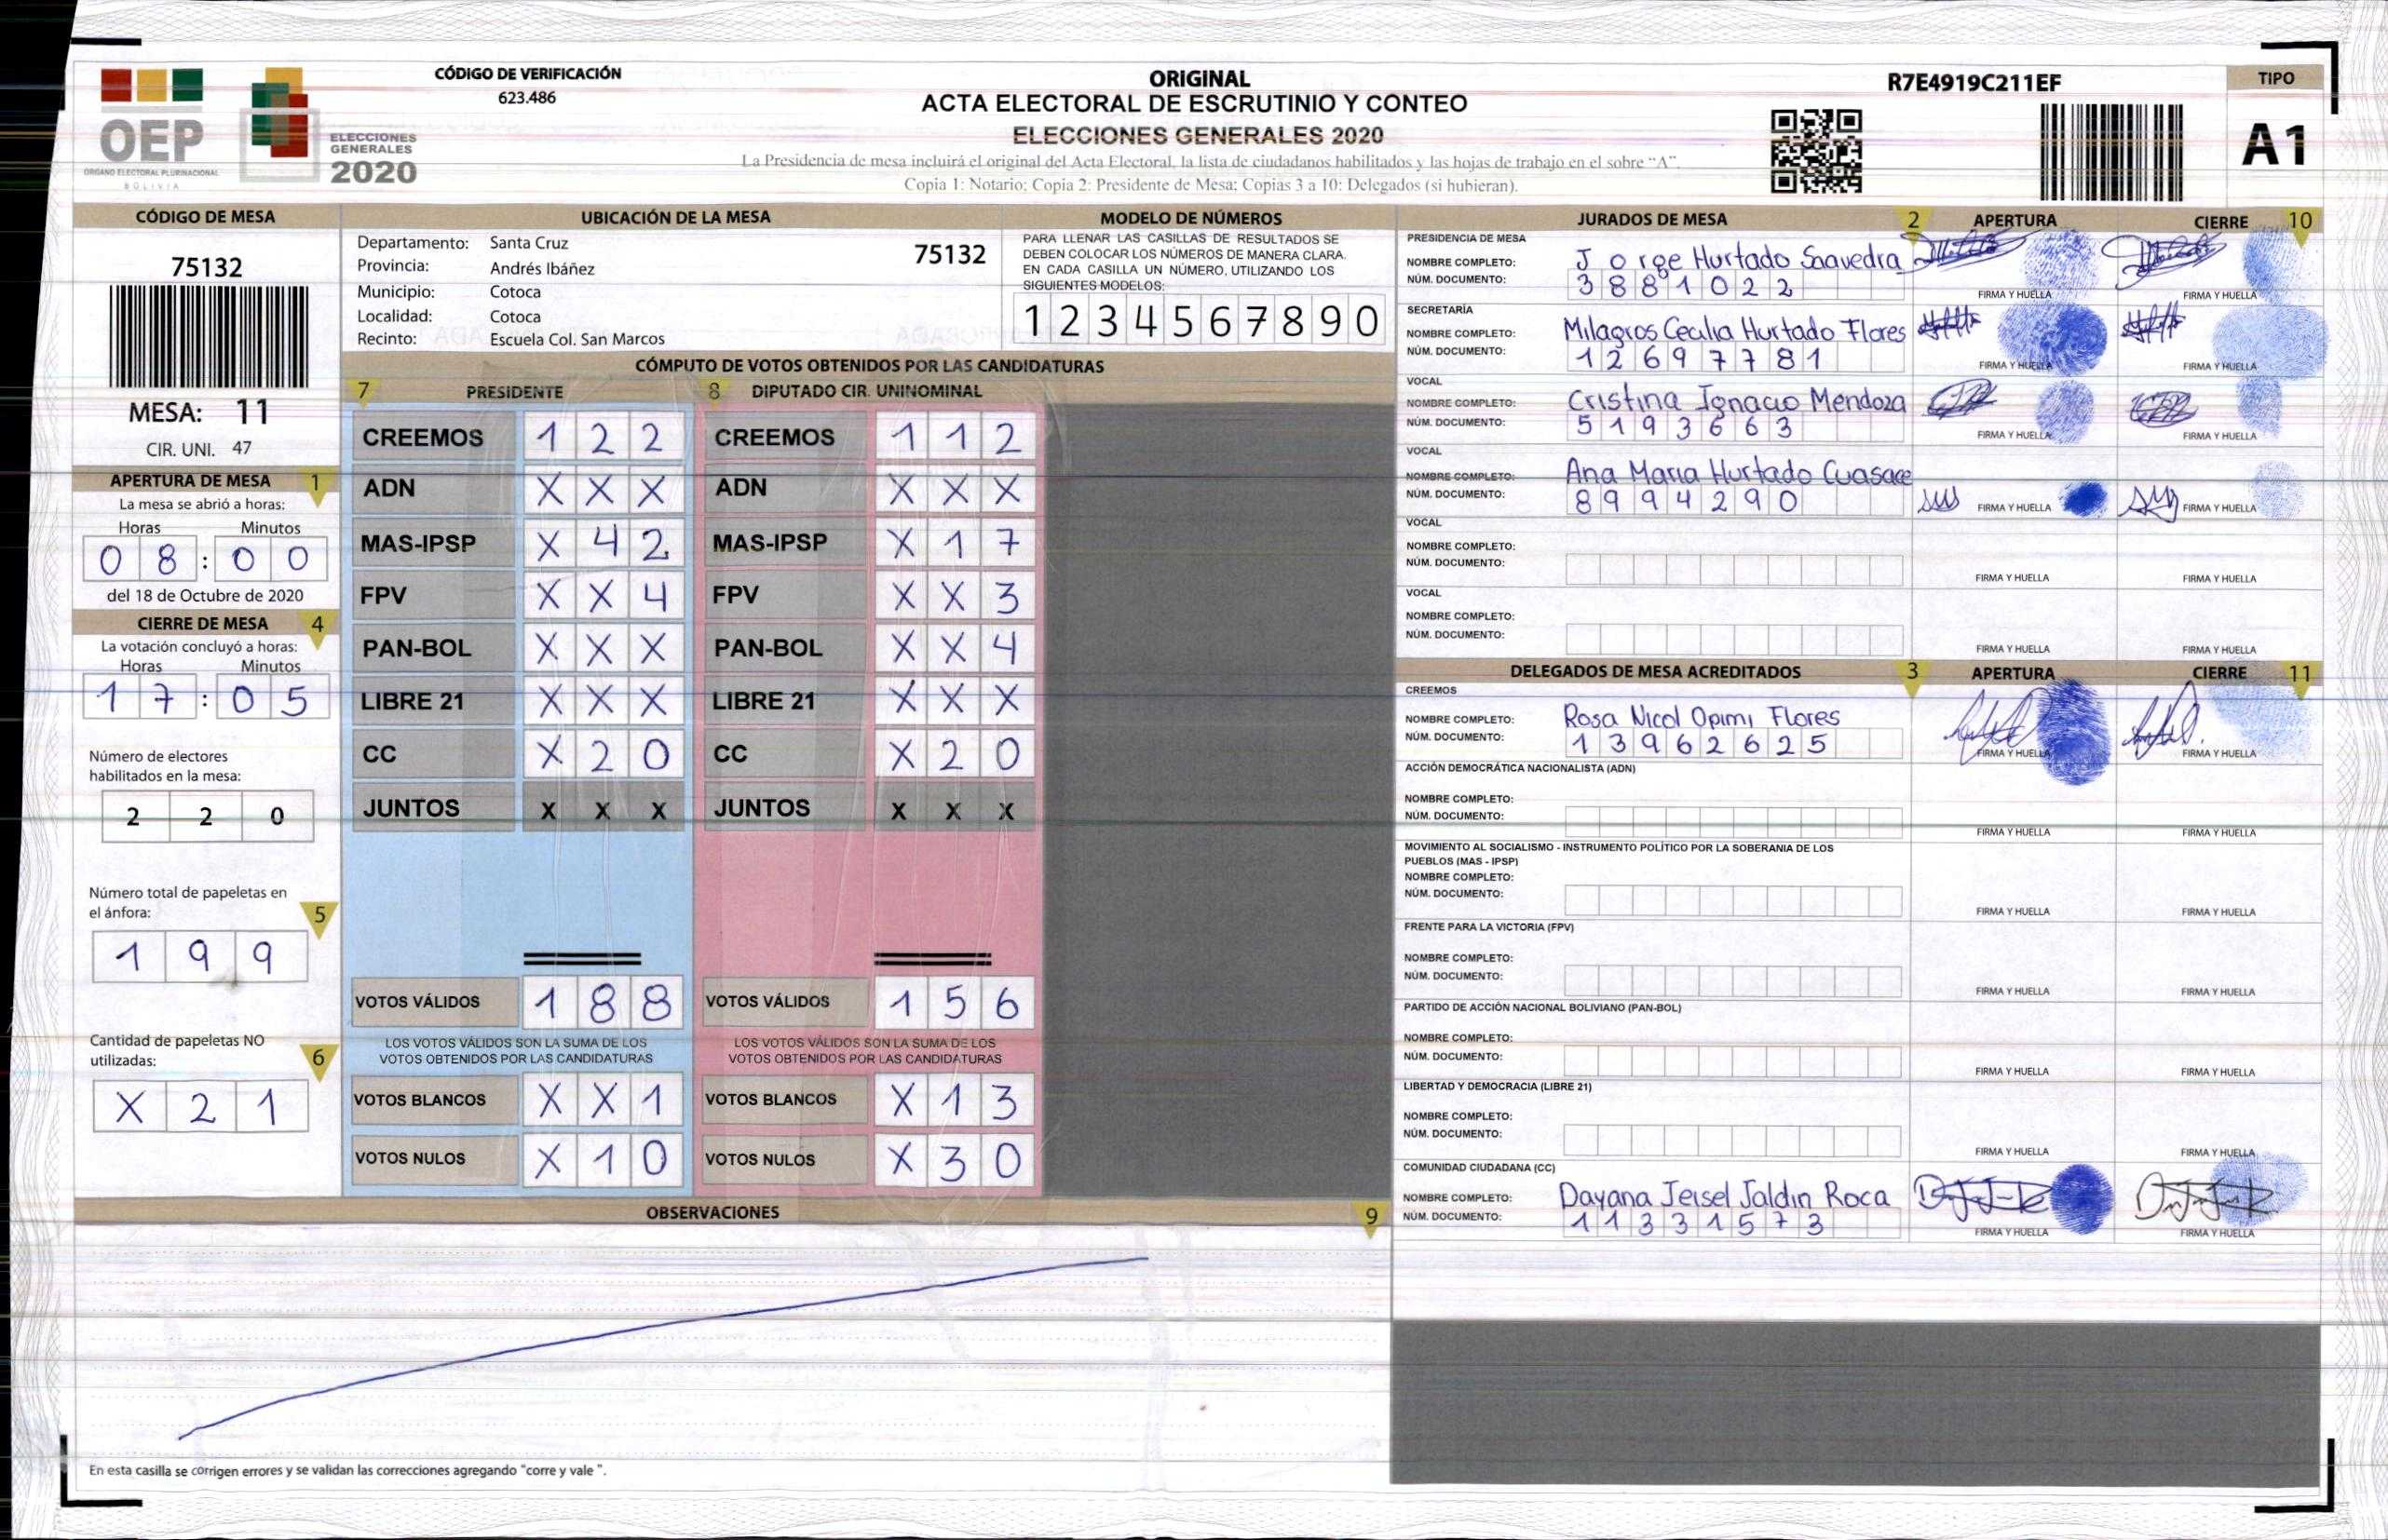 CÓDIGO DE VERIFICACIÓN
623.486
OEP
ÓRGANO ELECTORAL PLURINACIONAL
BOLIVIA
ELECCIONES
GENERALES
2020
ORIGINAL
ACTA ELECTORAL DE ESCRUTINIO Y CONTEO
ELECCIONES GENERALES 2020
La Presidencia de mesa incluirá el original del Acta Electoral, la lista de ciudadanos habilitados y las hojas de trabajo en el sobre "A".
Copia 1: Notario; Copia 2: Presidente de Mesa; Copias 3 a 10: Delegados (si hubieran).
R7E4919C211EF
TIPO
A1
CÓDIGO DE MESA
75132
MESA: 11
CIR. UNI. 47
UBICACIÓN DE LA MESA
Departamento: Santa Cruz
75132
Provincia: Andrés Ibáñez
Municipio: Cotoca
Localidad: Cotoca
Recinto: Escuela Col. San Marcos
MODELO DE NÚMEROS
PARA LLENAR LAS CASILLAS DE RESULTADOS SE
DEBEN COLOCAR LOS NÚMEROS DE MANERA CLARA.
EN CADA CASILLA UN NÚMERO, UTILIZANDO LOS
SIGUIENTES MODELOS:
1 2 3 4 5 6 7 8 9 0
APERTURA DE MESA 1
La mesa se abrió a horas:
Horas Minutos
0 8 : 0 0
del 18 de Octubre de 2020
CIERRE DE MESA 4
La votación concluyó a horas:
Horas Minutos
1 7 : 0 5
Número de electores
habilitados en la mesa:
2 2 0
Número total de papeletas en
el ánfora: 5
1 9 9
Cantidad de papeletas NO
utilizadas: 6
X 2 1
CÓMPUTO DE VOTOS OBTENIDOS POR LAS CANDIDATURAS
7 PRESIDENTE
CREEMOS 1 2 2
ADN X X X
MAS-IPSP X 4 2
FPV X X 4
PAN-BOL X X X
LIBRE 21 X X X
CC X 2 0
JUNTOS X X X
VOTOS VÁLIDOS 1 8 8
LOS VOTOS VÁLIDOS SON LA SUMA DE LOS
VOTOS OBTENIDOS POR LAS CANDIDATURAS
VOTOS BLANCOS X X 1
VOTOS NULOS X 1 0
8 DIPUTADO CIR. UNINOMINAL
CREEMOS 1 1 2
ADN X X X
MAS-IPSP X 1 7
FPV X X 3
PAN-BOL X X 4
LIBRE 21 X X X
CC X 2 0
JUNTOS X X X
VOTOS VÁLIDOS 1 5 6
LOS VOTOS VÁLIDOS SON LA SUMA DE LOS
VOTOS OBTENIDOS POR LAS CANDIDATURAS
VOTOS BLANCOS X 1 3
VOTOS NULOS X 3 0
OBSERVACIONES 9
En esta casilla se corrigen errores y se validan las correcciones agregando "corre y vale ".
JURADOS DE MESA 2 APERTURA CIERRE 10
PRESIDENCIA DE MESA
NOMBRE COMPLETO: Jorge Hurtado Saavedra
NÚM. DOCUMENTO: 3 8 8 1 0 2 2
FIRMA Y HUELLA FIRMA Y HUELLA
SECRETARÍA
NOMBRE COMPLETO: Milagros Cecilia Hurtado Flores
NÚM. DOCUMENTO: 1 2 6 9 7 7 8 1
FIRMA Y HUELLA FIRMA Y HUELLA
VOCAL
NOMBRE COMPLETO: Cristina Ignacio Mendoza
NÚM. DOCUMENTO: 5 1 9 3 6 6 3
FIRMA Y HUELLA FIRMA Y HUELLA
VOCAL
NOMBRE COMPLETO: Ana Maria Hurtado Cuasace
NÚM. DOCUMENTO: 8 9 9 4 2 9 0
FIRMA Y HUELLA FIRMA Y HUELLA
VOCAL
NOMBRE COMPLETO:
NÚM. DOCUMENTO:
FIRMA Y HUELLA FIRMA Y HUELLA
VOCAL
NOMBRE COMPLETO:
NÚM. DOCUMENTO:
FIRMA Y HUELLA FIRMA Y HUELLA
DELEGADOS DE MESA ACREDITADOS 3 APERTURA CIERRE 11
CREEMOS
NOMBRE COMPLETO: Rosa Nicol Opimi Flores
NÚM. DOCUMENTO: 1 3 9 6 2 6 2 5
FIRMA Y HUELLA FIRMA Y HUELLA
ACCIÓN DEMOCRÁTICA NACIONALISTA (ADN)
NOMBRE COMPLETO:
NÚM. DOCUMENTO:
FIRMA Y HUELLA FIRMA Y HUELLA
MOVIMIENTO AL SOCIALISMO - INSTRUMENTO POLÍTICO POR LA SOBERANIA DE LOS
PUEBLOS (MAS - IPSP)
NOMBRE COMPLETO:
NÚM. DOCUMENTO:
FIRMA Y HUELLA FIRMA Y HUELLA
FRENTE PARA LA VICTORIA (FPV)
NOMBRE COMPLETO:
NÚM. DOCUMENTO:
FIRMA Y HUELLA FIRMA Y HUELLA
PARTIDO DE ACCIÓN NACIONAL BOLIVIANO (PAN-BOL)
NOMBRE COMPLETO:
NÚM. DOCUMENTO:
FIRMA Y HUELLA FIRMA Y HUELLA
LIBERTAD Y DEMOCRACIA (LIBRE 21)
NOMBRE COMPLETO:
NÚM. DOCUMENTO:
FIRMA Y HUELLA FIRMA Y HUELLA
COMUNIDAD CIUDADANA (CC)
NOMBRE COMPLETO: Dayana Jeisel Jaldin Roca
NÚM. DOCUMENTO: 1 1 3 3 1 5 7 3
FIRMA Y HUELLA FIRMA Y HUELLA